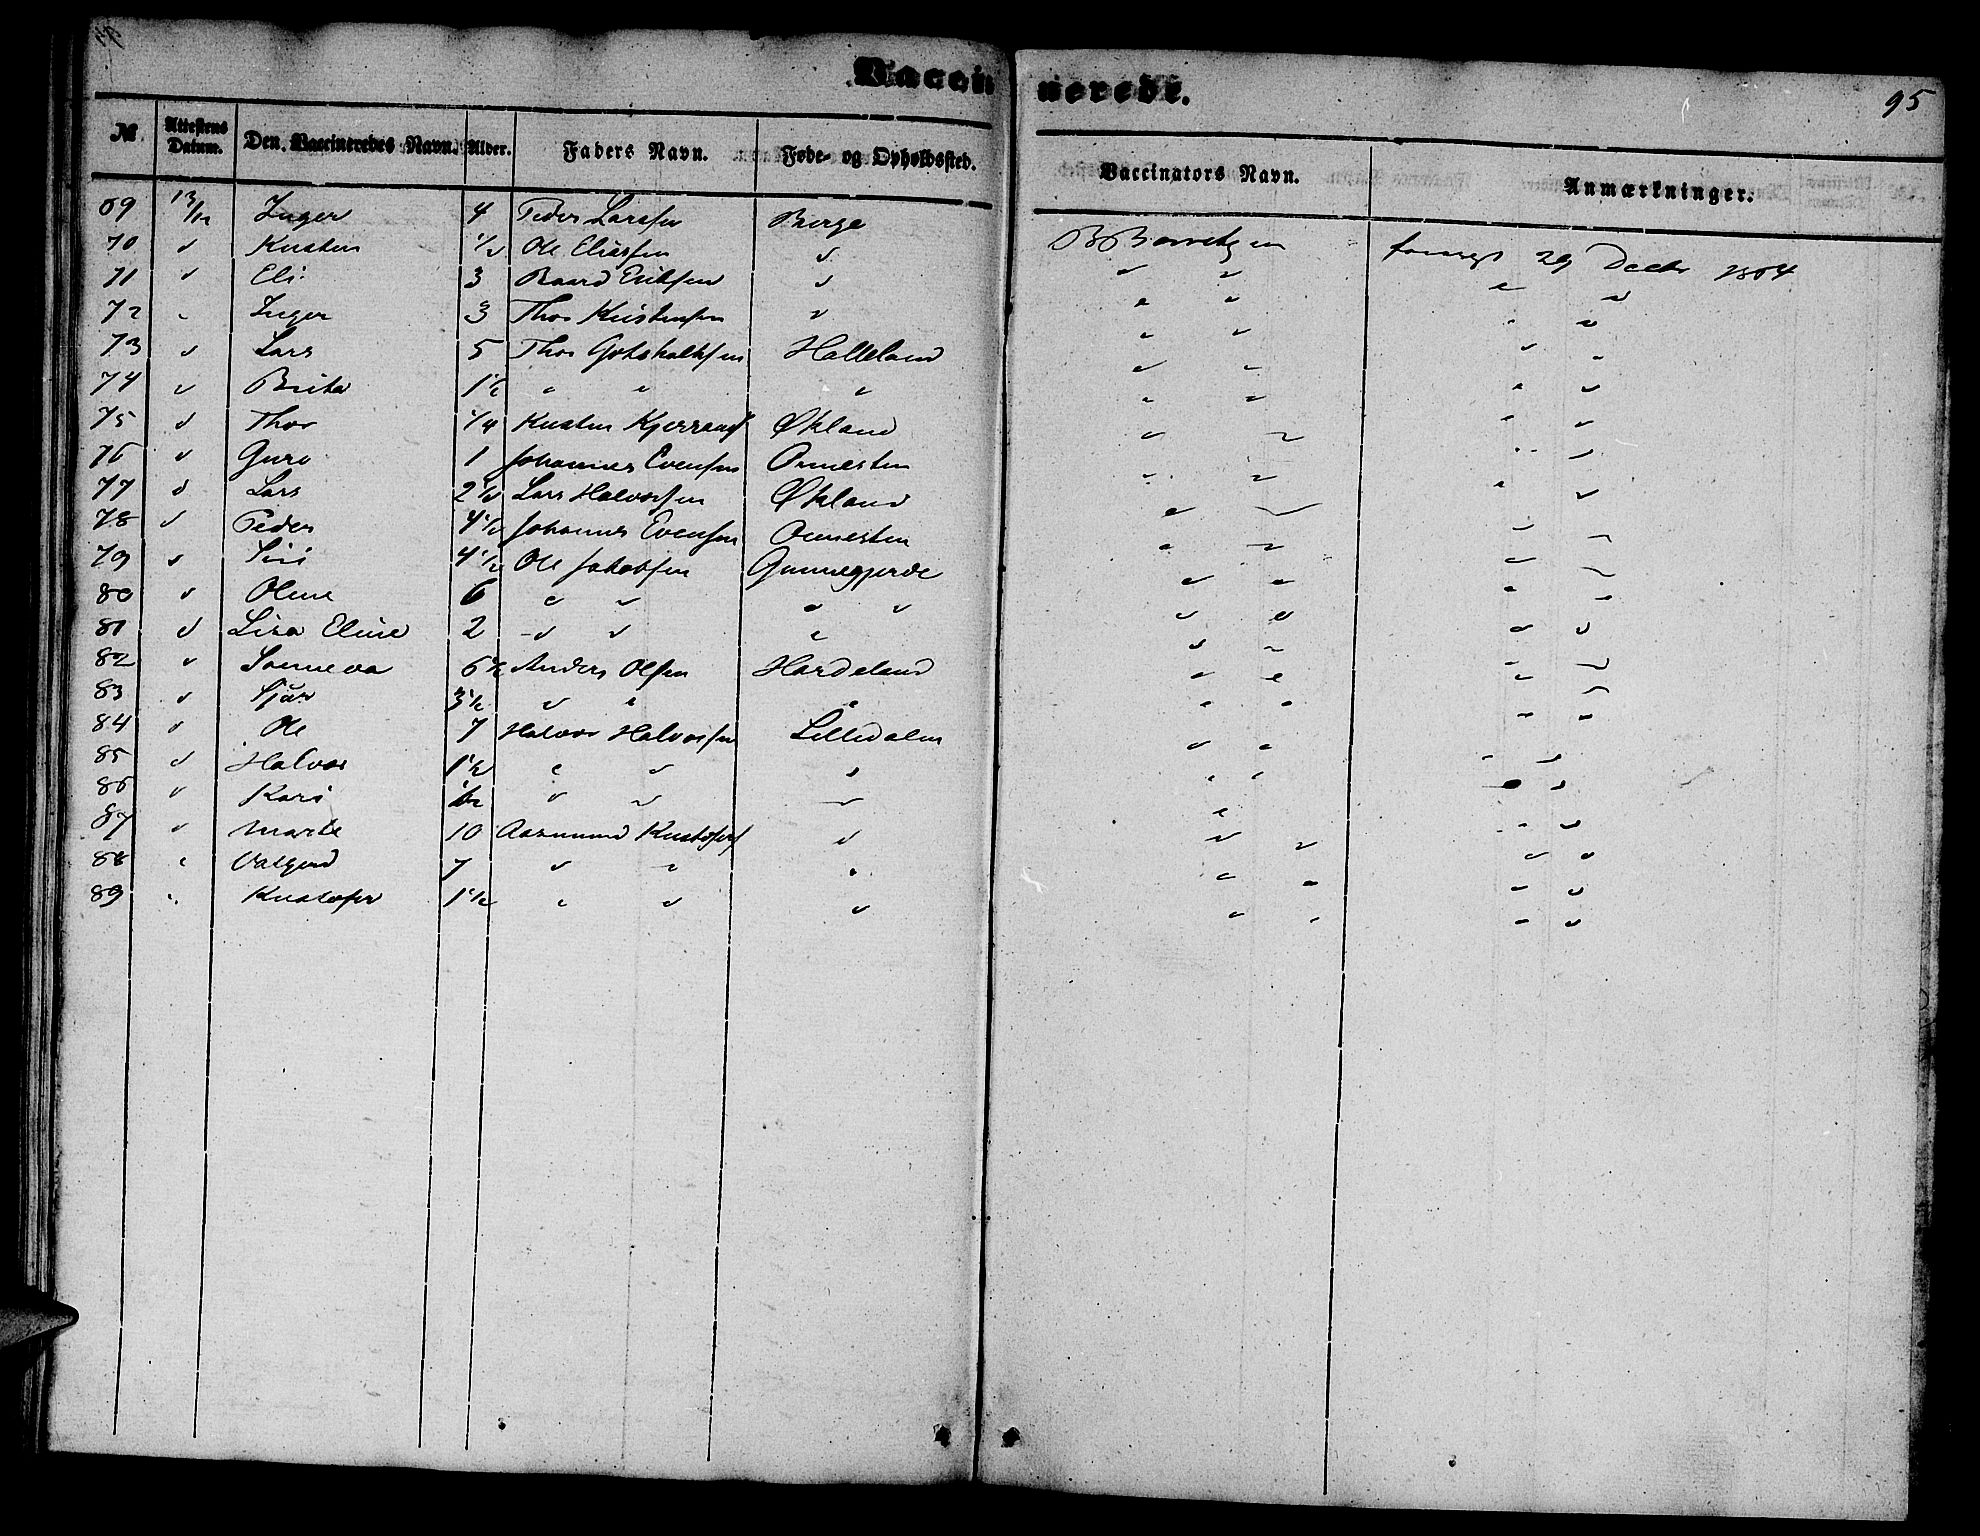 Vaccinerede.
95
№ Attestens Datum. Den Vaccineredes Navn. Alder. Faders Navn. Føde- og Opholdssted. Vaccinators Navn. Anmærkninger.
69 13/12 Inger 4 Peder Larssen Berge 29 Decbr 1864
70 " Kristen 1/2 Ole Eliassen "
71 " Eli 3 Baard Eriksen " " " " "
72 " Inger 3 Thor Kristensen " " " " "
73 " Lars 5 Thor Gotskalksen Halleland " " " "
74 " Brita 1 1/2 " " " " " " "
75 " Thor 1/4 Kristen Kjerrand Økland " " " "
76 " Guro 1 Johannes Evensen Ornesten " " " "
77 " Lars 2 1/2 Lars Halvorsen Økland " " " "
78 " Peder 4 1/2 Johannes Evensen Ornesten " " " "
79 " Siri 4 1/2 Ole Jakobsen Gunnegjerde " " " "
80 " Oline 6 " " " " " " " "
81 " Lisa Eline 2 " " " " " " "
82 " Sønneva 6 1/2 Anders Olsen Hardeland " " " "
83 " Sjur 3 1/2 " " " " " " "
84 " Ole 7 Halvor Halvorsen Lilledalen " " " "
85 " Halvor 1 1/2 " " " " " " "
86 " Kari 1/2 " " " " " " "
87 " Marte 10 Aasmund Kristofers " " " " "
88 " Valgjerd 7 " " " " " " "
89 " Kristofer 1 1/2 " " " " " " "